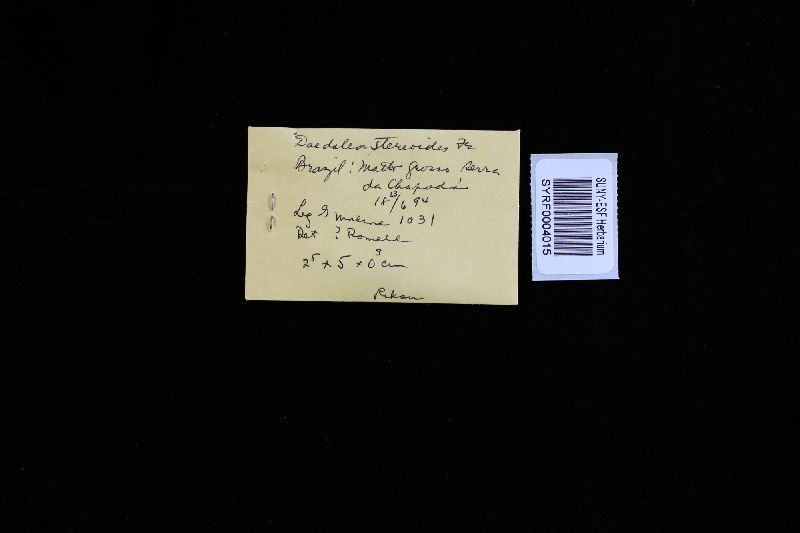 "Daedalea stereoides Fr
Brazil: Matto Grosso Serra
da Chapada
18 23/6 94
Leg G Malme 1031
Det ? Romell
2⁵ + 5 + 0³ cm
SUNY-ESF Herbarium
SYRF0004015